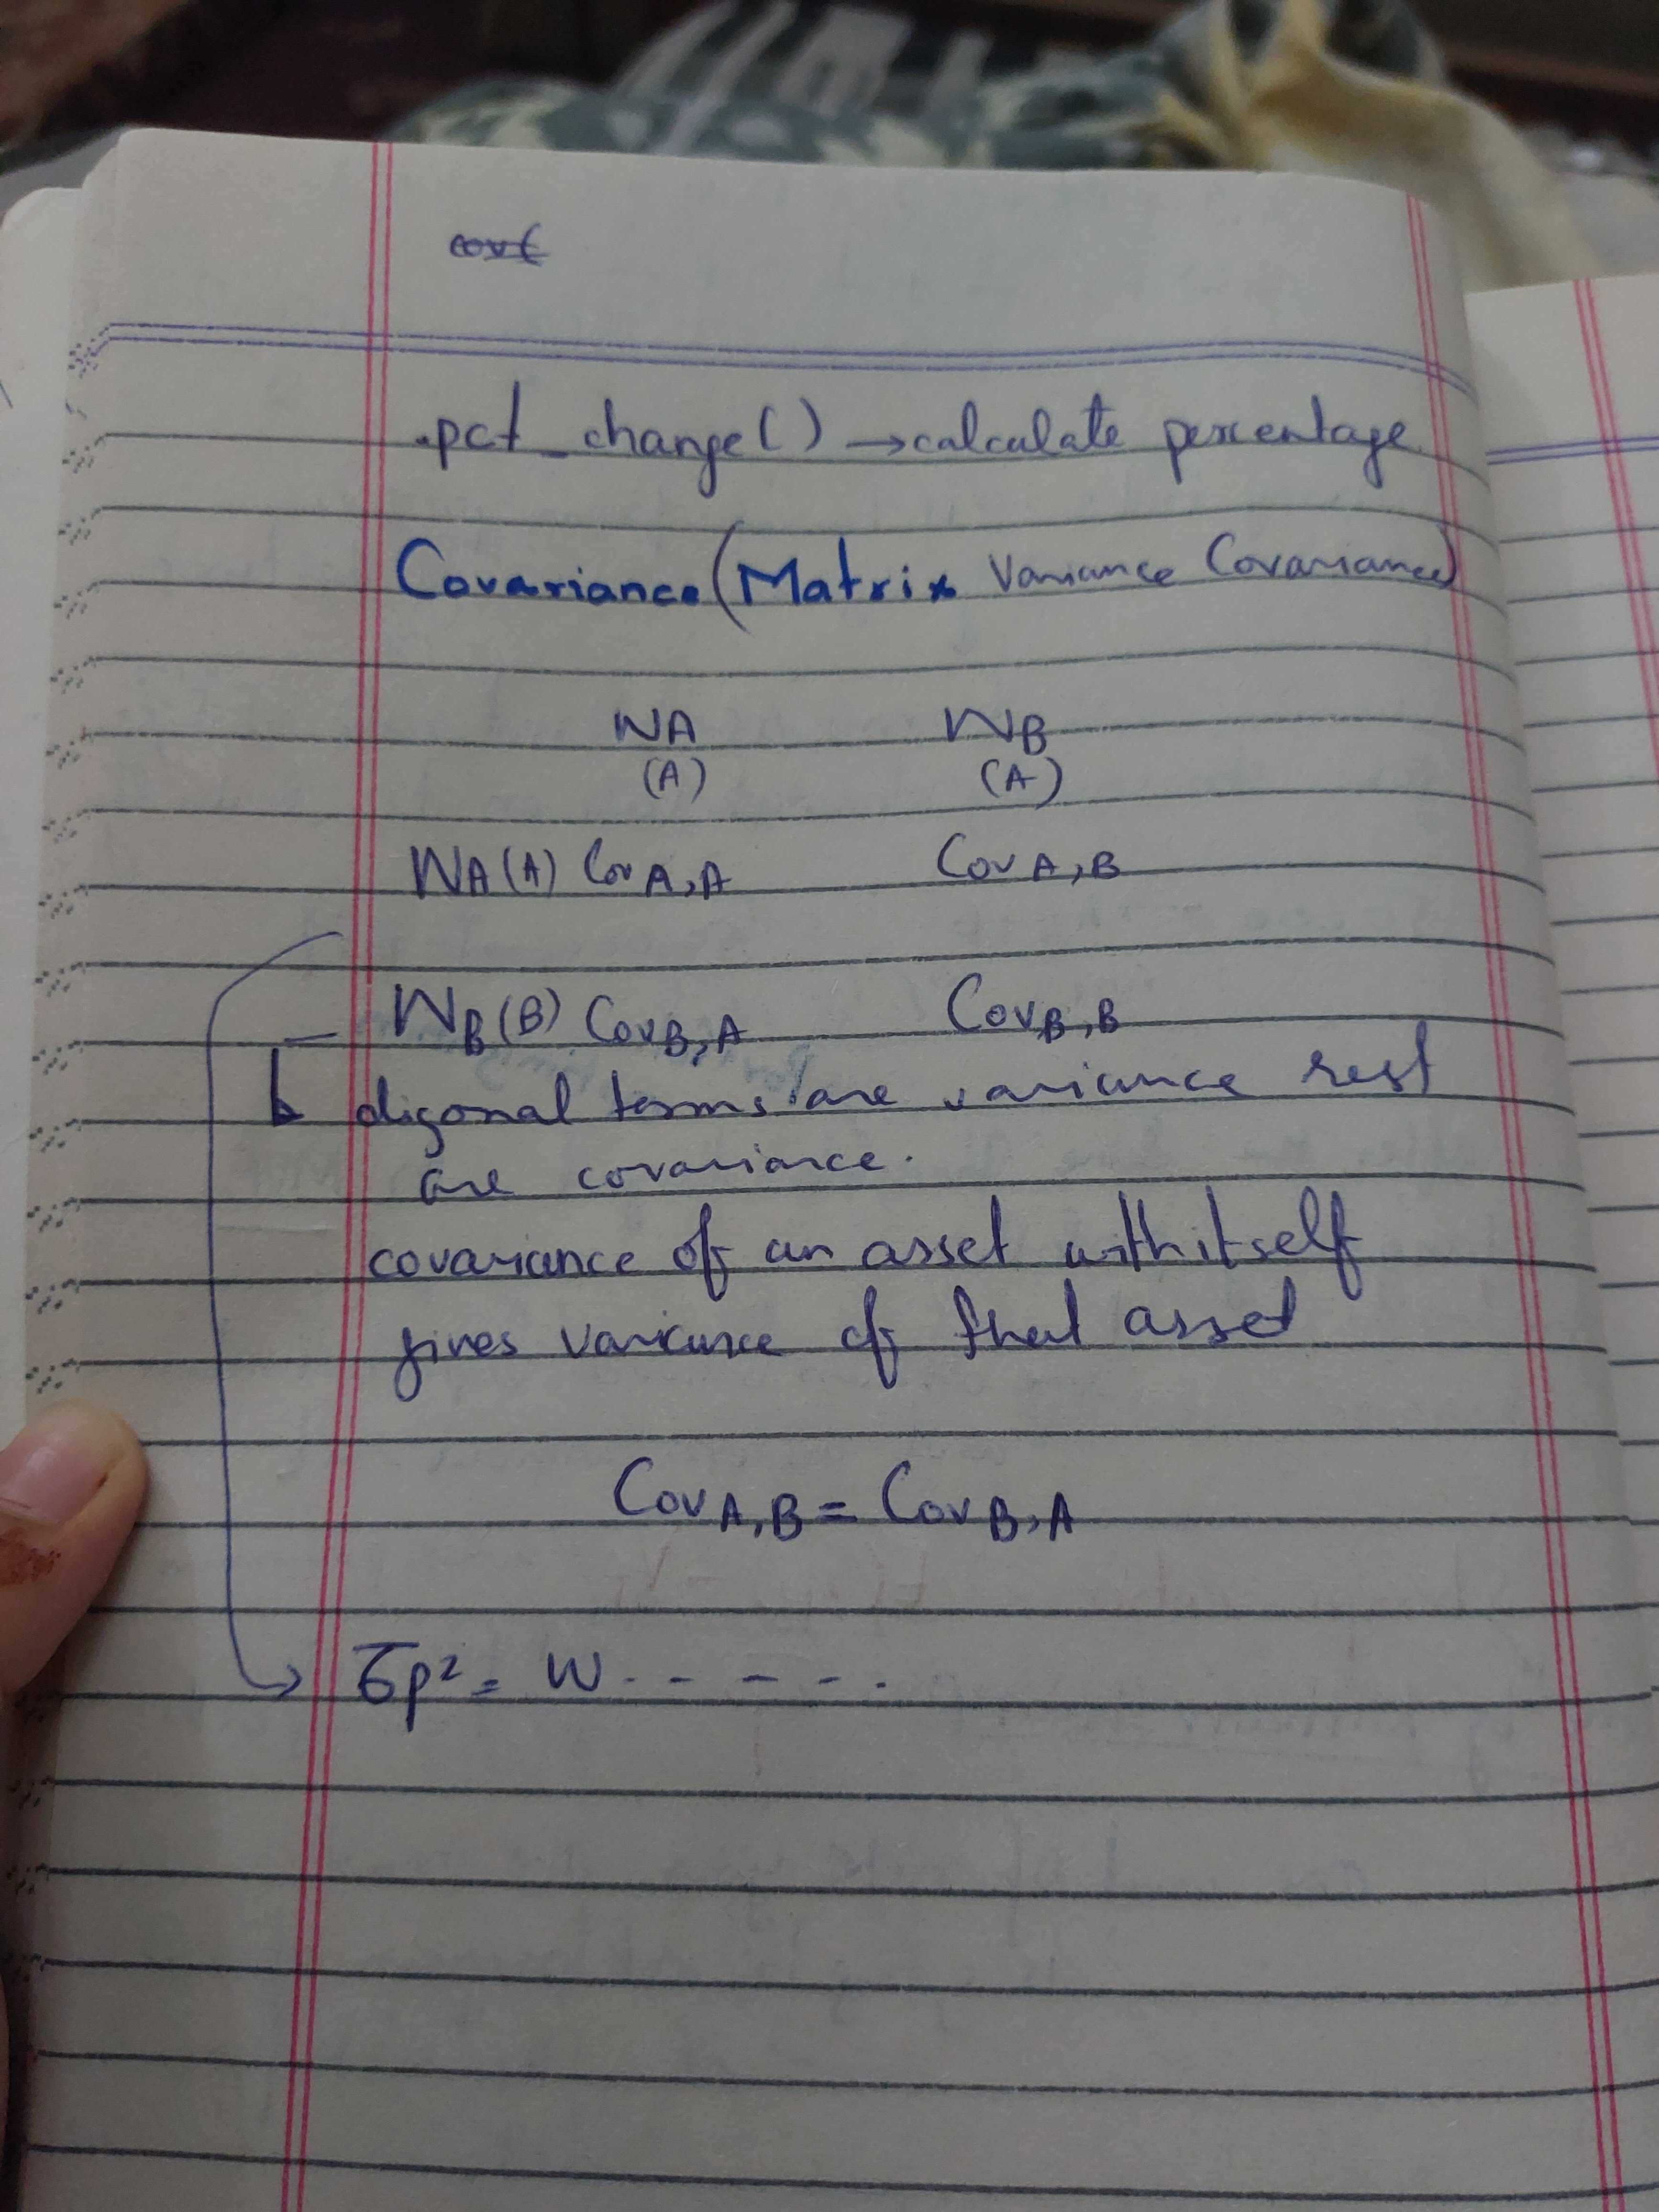 .pct_change() → calculate percentage
Covariance (Matrix Variance Covariance)
WA WB
(A) (A)
WA(A) Cov A,A Cov A,B
WB(B) Cov B,A Cov B,B
digonal terms are variance rest
are covariance.
covariance of an asset with itself
gives variance of that asset
Cov A,B = Cov B,A
σp² = W - - - - .